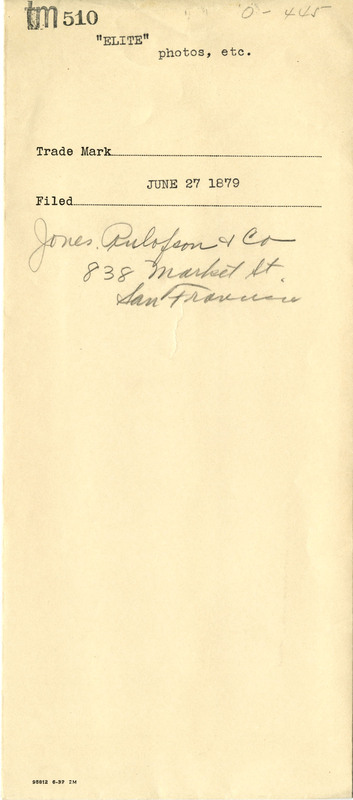 tm 510
0 - 445
"ELITE"
photos, etc.
Trade Mark
JUNE 27 1879
Filed
Jones. Rulofson & Co
838 Market St.
San Francisco
95812 6-37 2M